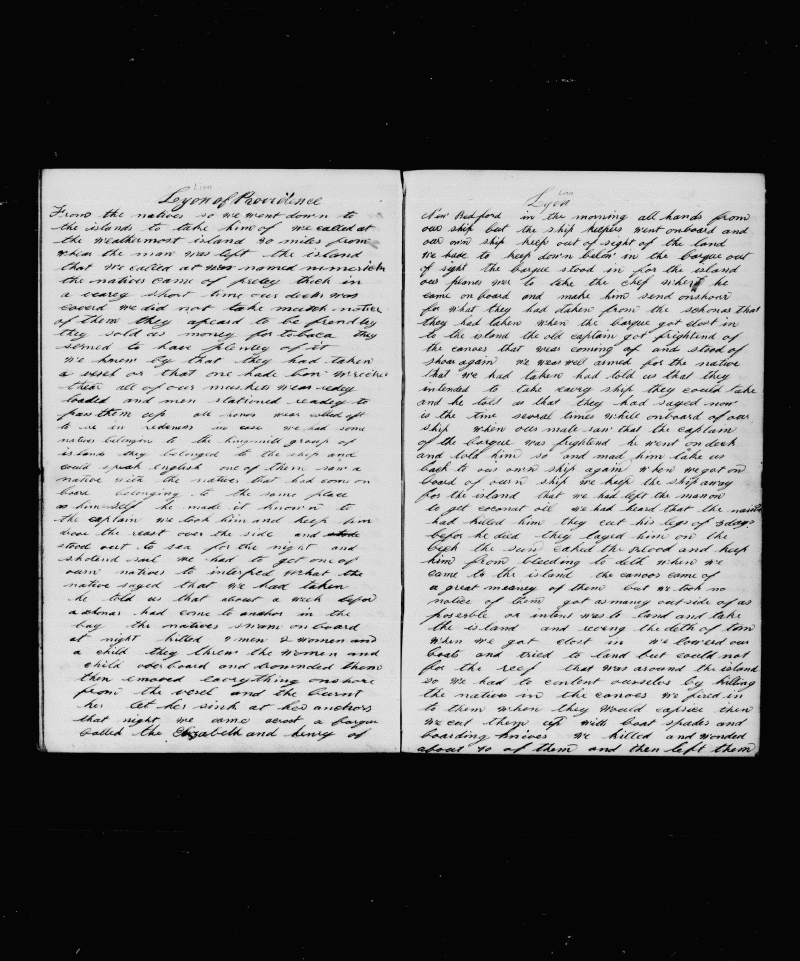 Lion
Lyon of Providence
From the natives so we went down to
the islands to take him of we called at
the weathermost island 30 miles from
whear the man was left the island
that we called at was named
the natives came of pretey thick in
a vearey short time our deck was
coverd we did not take mutch notice
of them they apeard to be frendley
they sold us money for tobaca they
semed to have plentey of it
we knew by that they had taken
a vesel or that one hade ben wrecked
thear all of our muskets wear redey
loaded and men stationed readey to
pass them up all hands wear
to be in redeness in case we had some
natives belongin to the kingsmill group of
islands they belonged to the ship and
could speak english one of them saw a
native with the natives that had come on
board belonging to the same place
as himself he made it known to
the captain we took him and keep him
drove the reast over the side and
stood out to sea for the night and
shortend sail we had to get one of
ours natives to interpret what the
native sayed that we had taken
he told us that about a week befor
a schonar had come to anchor in the
bay the natives swam on board
at night killed 9 men 2 women and
a child they threw the women and
child overboard and drounded them
then emoved eavrything onshore
from the vesel and the burnt
her let her sink at her anchors
that night we came acrost a barque
called the Elizabeth and henrey of
Lion
Lyon
New Bedford in the morning all hands from
our ship but the ship keepers went onboard and
our own ship keep out of sight of the land
we hade to keep down below in the barque out
of sight the barque stood in for the island
our planes wer to take the chef when he
came on board and make him send onshour
for what they had taken from the schonar that
they had taken when the barque got clost in
to the island the old captain got frightend of
the canoes that wear coming of and stood of
shoar again we wear well armed for the native
that we had taken had told us that they
intended to take eavrey ship they could take
and he told us that they had sayed now
is the time several times while onboard of our
ship when our mate saw that the captain
of the barque was frightend he went on deck
and told him so and mad him take us
back to our own ship again when we got on
board of ourn ship we keep the ship away
for the island that we had left the man on
to get coconut oil we had heard that the natives
had killed him they cut his legs of 3 days
befor he died they layed him on the
beech the sun caked the blood and keep
him from bleeding to deth when we
came to the island the canoes came of
a great meaney of them but we took no
notice of them got as maney out side of as
posseble our intens was to land and take
the island and reveng the deth of tom
when we got clost in we lowerd our
boats and tried to land but could not
for the reef that was around the island
so we had to content ourselvs by killing
the natives in the canoes we fired in
to them when they would capsize then
we cut them up with boat spades and
boarding knives we killed and wonded
about 40 of them and then left them